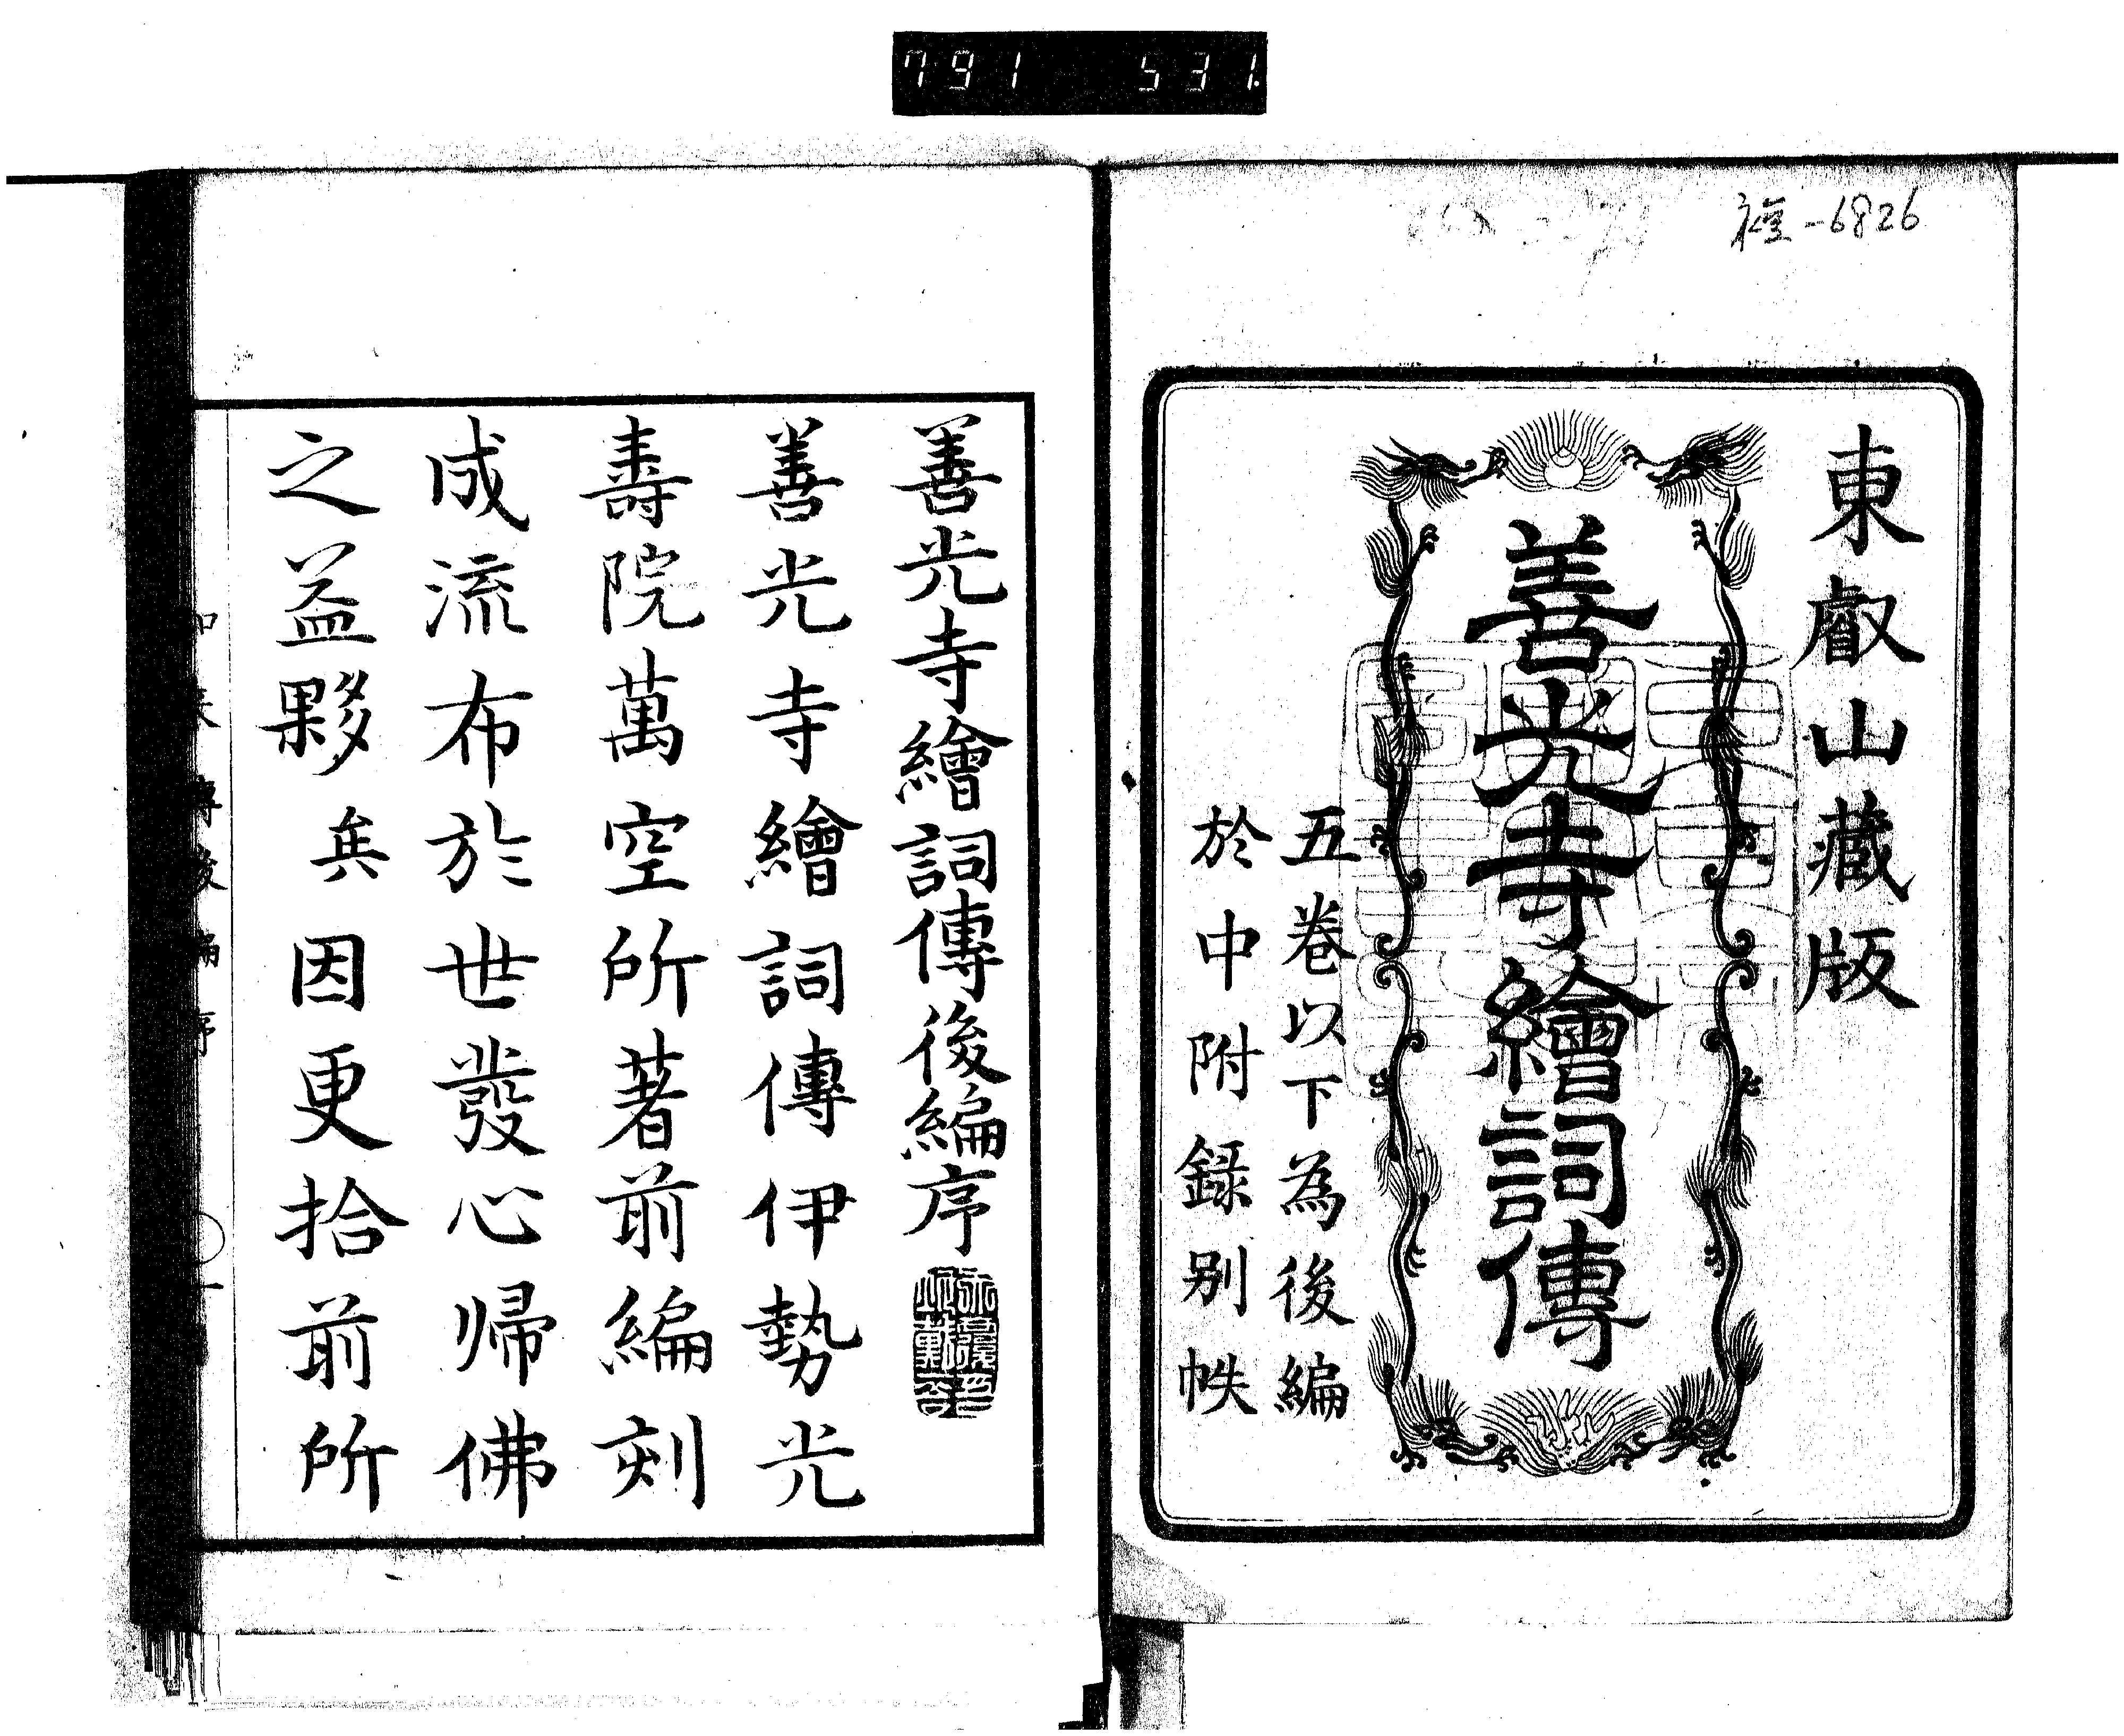 791 531
種-6826
東叡山藏版
善光寺繪詞傳
五卷以下為後編
於中附録別帙
善光寺繪詞傳後編序
善光寺繪詞傳伊勢光
壽院萬空所著前編刻
成流布於世發心帰佛
之益夥矣因更拾前所